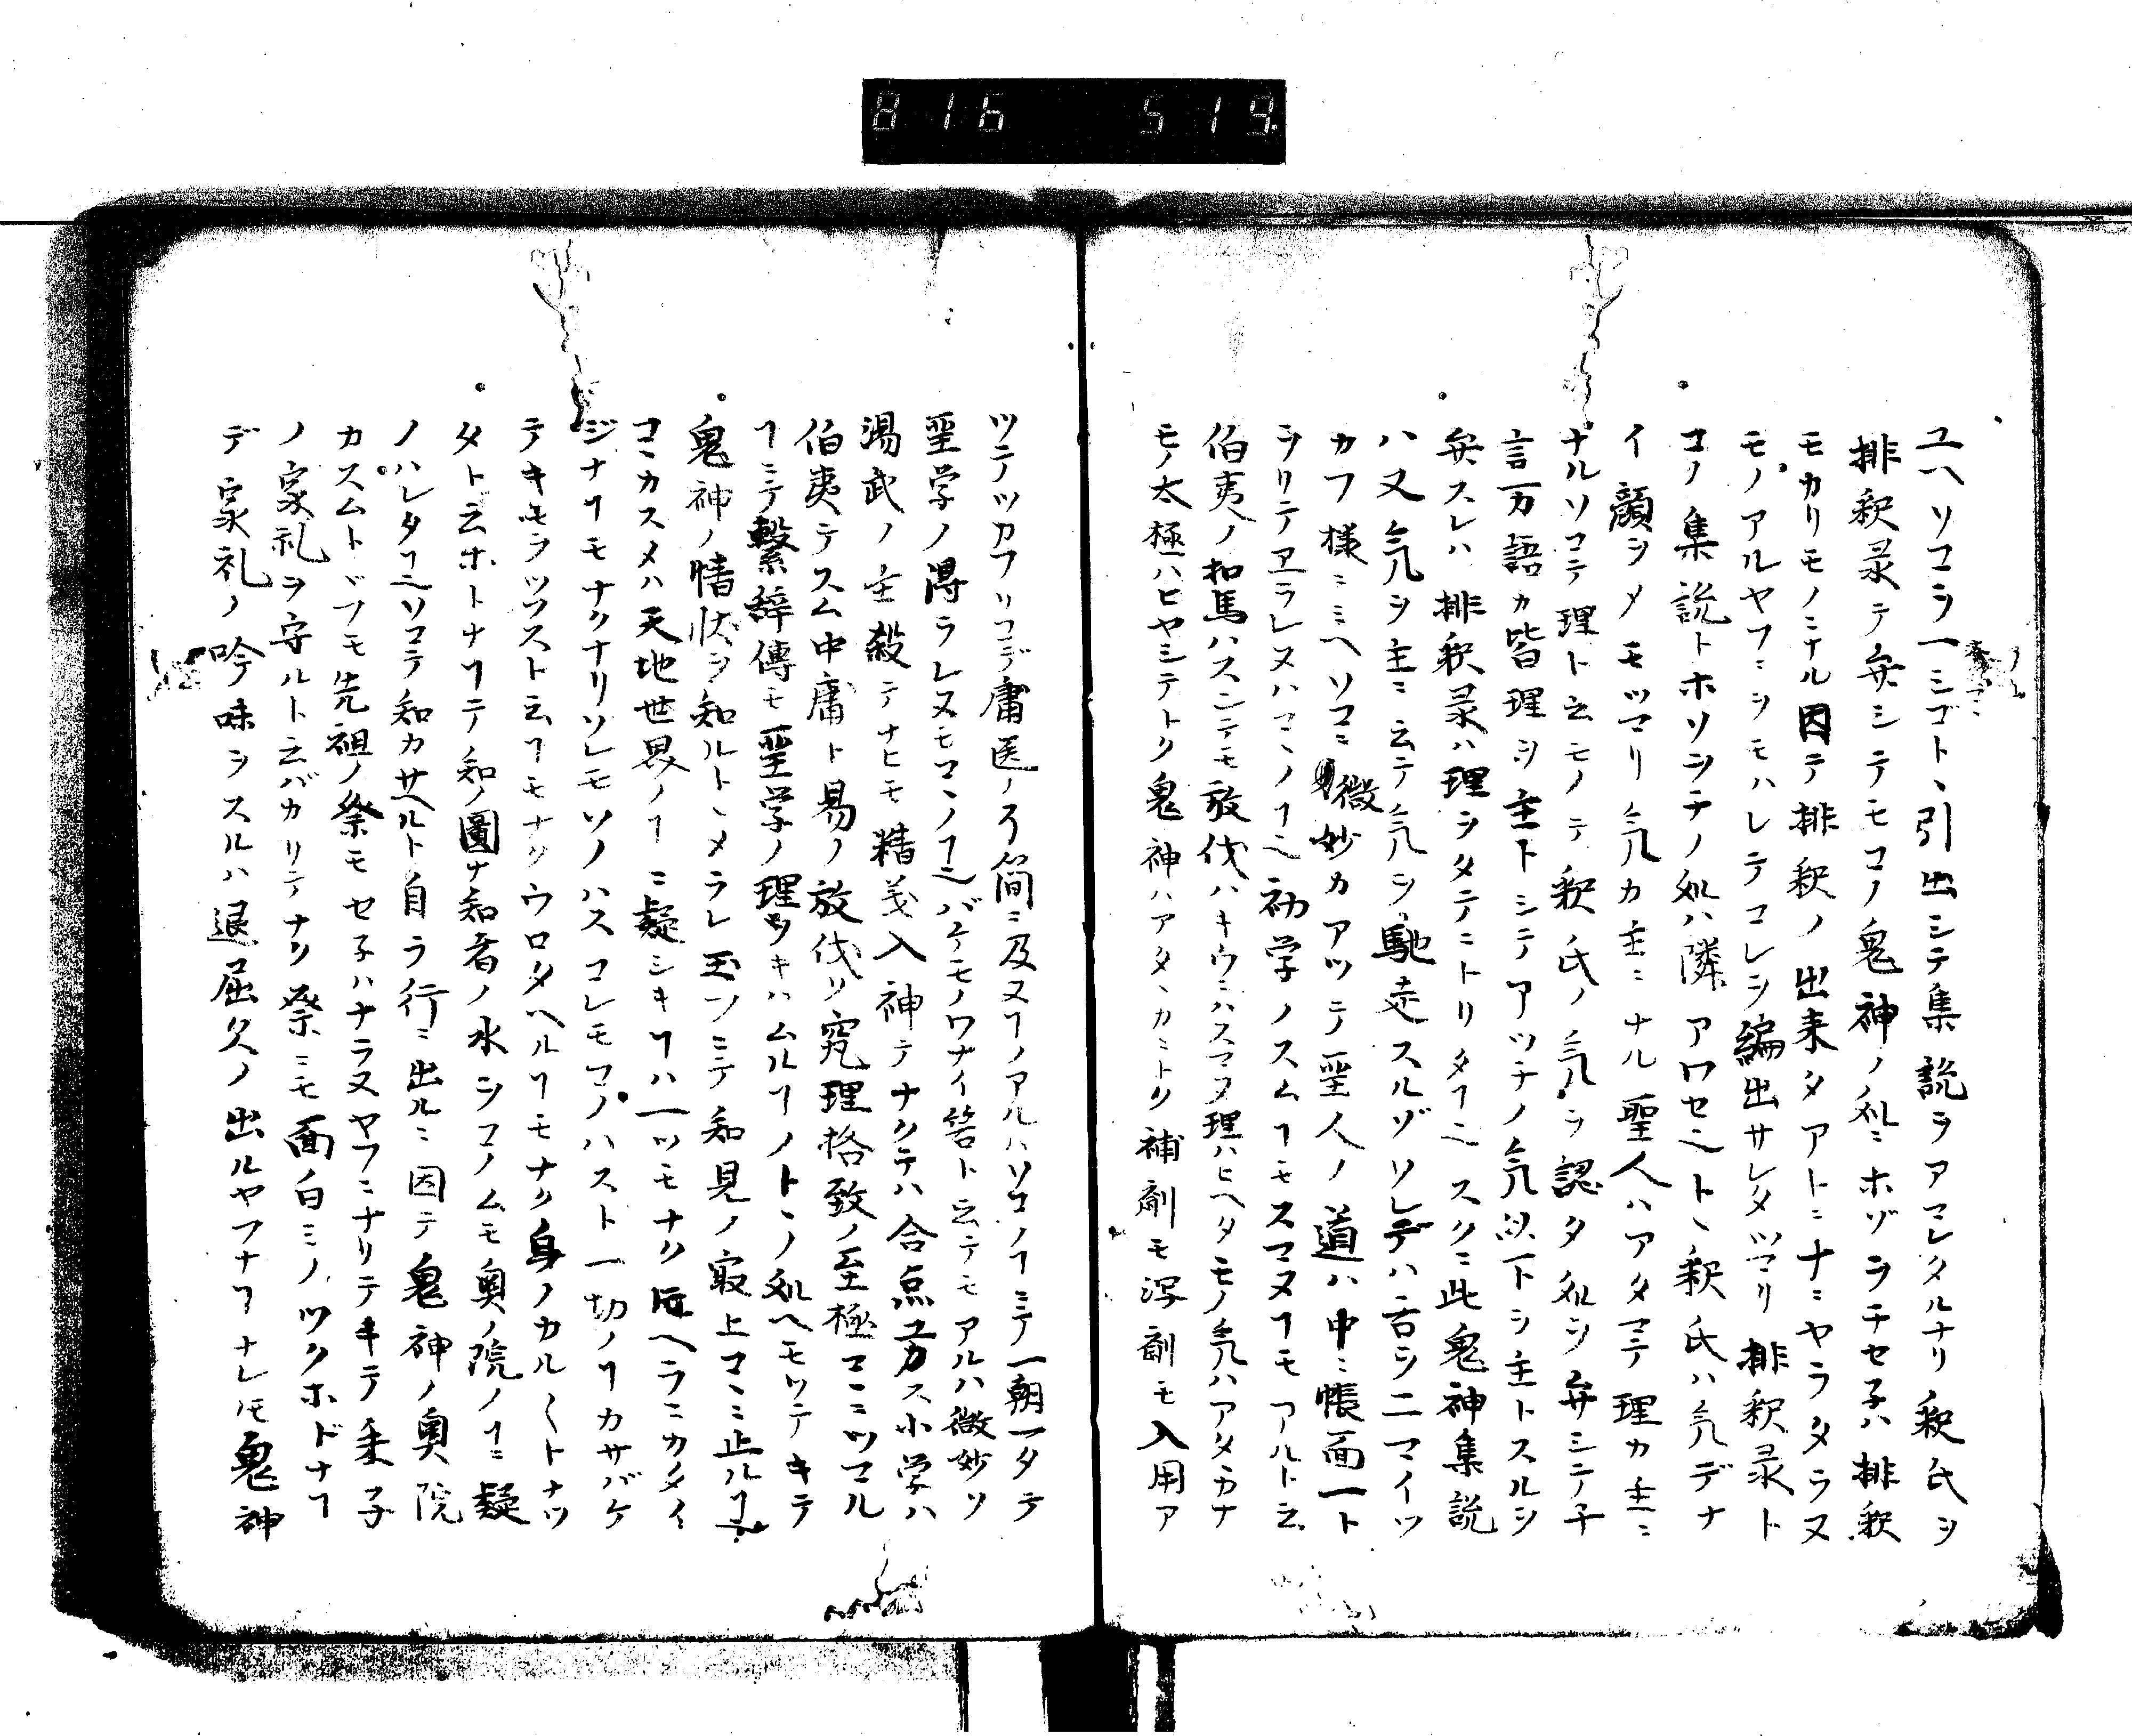 8 16 5 19.
ユヘソコヲ一シゴトヽ引出シテ集説ヲアマレタルナリ釈氏ヲ
排釈录テ弁シテモコノ鬼神ノ処ニホゾヲチセ子ハ排釈
モカリモノニナル因テ排釈ノ出来タアトニナニヤラタラヌ
モノアルヤフニヲモハレテコレヲ編出サレタツマリ排釈录ト
コノ集説トホソヲチノ処ハ隣アワセヘト丶釈氏ハ気デナ
イ顔ヲメモツマリ気カ主ニナル聖人ハアタマテ理カ主ニ
ナルソコテ理ト云モノテ釈氏ノ気ヲ認タ処ヲ弁シテ千
言万語カ皆理ヲ主トシテアツチノ気以下ヲ主トスルヲ
弁スレハ排釈录ハ理ヲタテニトリタヿヘスクニ此鬼神集説
ハ又気ヲ主ニ云テ気ヲ馳走スルゾソレデハ舌ヲ二マイツ
カフ様ニミヘソコニ微妙カアツテ聖人ノ道ハ中ニ帳面一ト
ヲリテヱラレヌハコヽノヿヘ初学ノスムヿモスマヌヿモアルト云
伯夷ノ扣馬ハスンテモ放伐ハキウニハスマヌ理ハヒヘタモノ気ハアタヽカナ
モノ太極ハヒヤシテトク鬼神ハアタヽカニトク補剤モ浮剤モ入用ア
ツテツカフソコデ庸医ノ了簡ニ及ヌヿノアルハソコノヿニテ一朝一タテ
聖学ノ得ラレヌモコヽノヿヘバケモノワナイ筈ト云テモアルハ微妙ソ
湯武ノ主殺テナヒモ精義入神テナクテハ合点ユカス小学ハ
伯夷テスム中庸ト易ノ放伐ソ窮理格致ノ至極コヽニツマル
ヿニテ繋辞傳モ聖学ノ理ツキハムルヿノトヽノ処ヘモツテキテ
鬼神ノ情状ヲ知ルトヽメラレ玉フニテ知見ノ最上コヽニ止ルヿヘ
コヽカスメハ天地世界ノヿニ疑シキヿハ一ツモナク
ジナヿモナクナリソレモソノハスコレモコノハスト一切ノヿカサバケ
テキモヲツフスト云ヿモナクウロタヘルヿモナク身ノカル〱トナツ
タト云ホトナヿテ知ノ圖ナ知者ノ水ヲコノムモ奥ノ院ノヿニ疑
ノハレタヿヘソコテ知カサヘルト自ラ行ニ出ルニ因テ鬼神ノ奥院
カスムトドフモ先祖ノ祭モセ子ハナラヌヤフニナリテキテ朱子
ノ家礼ヲ守ルト云バカリテナク祭ミモ面白ミノツクホドナヿ
デ家礼ノ吟味ヲスルハ退屈久ノ出ルヤフナヿナレモ鬼神